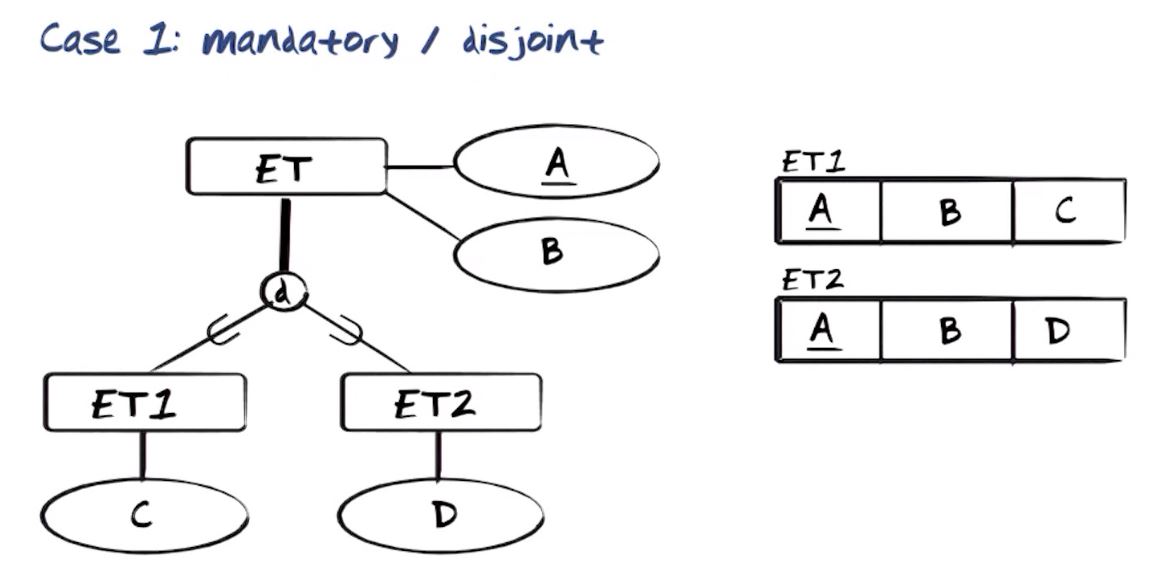 Case 1: mandatory / disjoint
ET
A
B
d
ET1
ET2
C
D
ET1
A B C
ET2
A B D